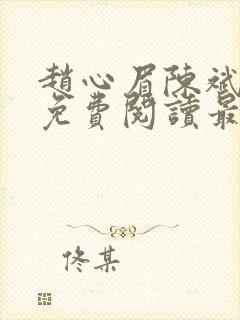 趙心眉陳斌
免費閱讀最
佟某